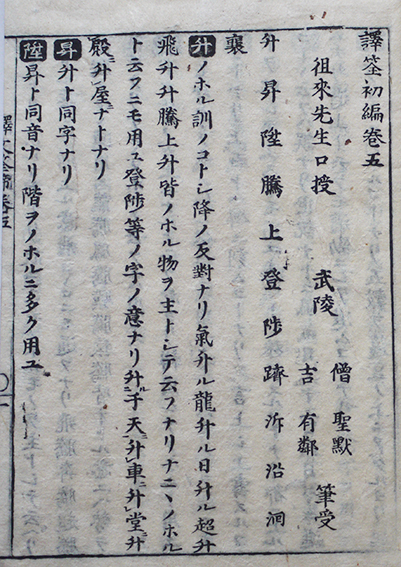 譯筌初編卷五
徂來先生口授
僧 聖默
武陵 筆受
吉 有鄰
升 昇 陞 騰 上 登 陟 躋 泝 沿 洄
襄
升 ノホル訓ノコトシ降ノ反對ナリ氣升ル龍升ル日升ル超升
飛升升騰上升皆ノホル物ヲ主トシテ云フナリナニヽノホル
ト云フニモ用ユ登陟等ノ字ノ意ナリ升ル于天ニ升車ニ升堂ニ升
殿ニ升屋ニナトナリ
昇 升ト同字ナリ
陞 昇ト同音ナリ階ヲノホルニ多ク用ユ